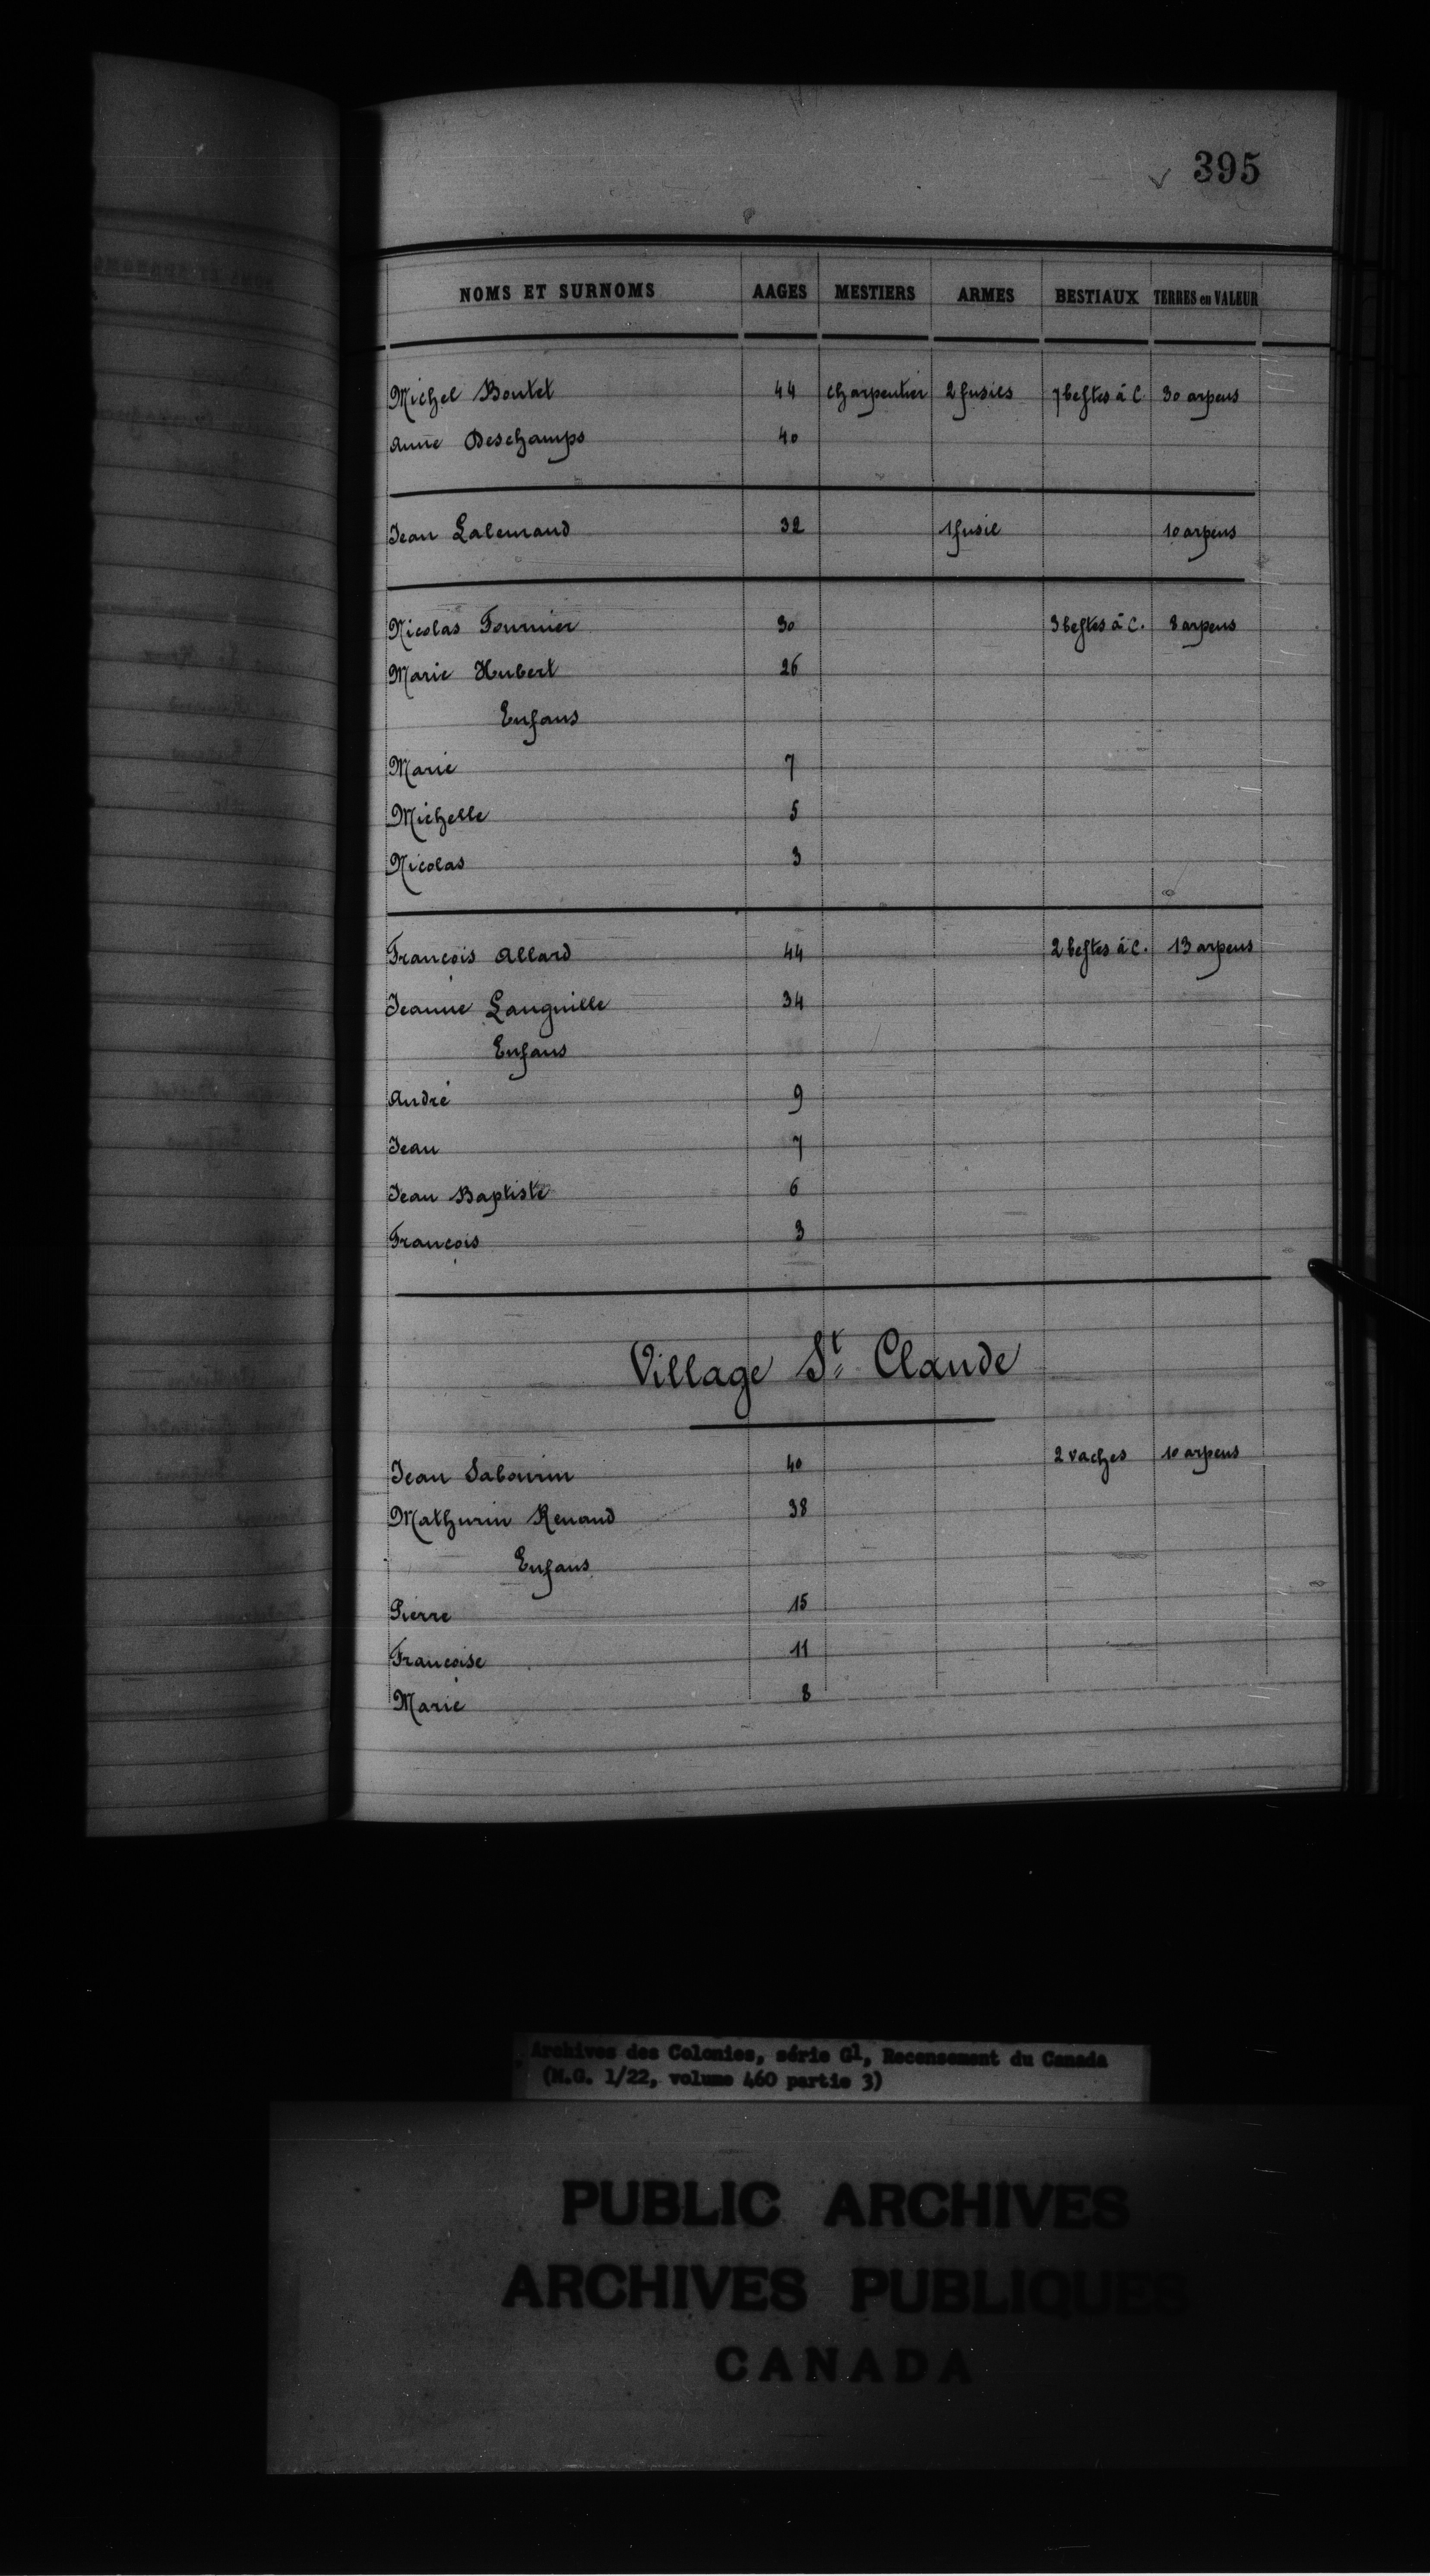 395
NOMS ET SURNOMS AAGES MESTIERS ARMES BESTIAUX TERRES en VALEUR
Michel Boutet 44 charpentier 2 fusils 7 bestes à C. 30 arpens
Anne Deschamps 40
Jean Lalemand 32 1 fusil 10 arpens
Nicolas Fournier 30 3 bestes à C. 8 arpens
Marie Hubert 26
Enfans
Marie 7
Michelle 5
Nicolas 3
François Allard 44 2 bestes à C. 13 arpens
Jeanne Languille 34
Enfans
André 9
Jean 7
Jean Baptiste 6
François 3
Village St. Claude
Jean Sabourin 40 2 vaches 10 arpens
Mathurin Renaud 38
Enfans
Pierre 15
Françoise 11
Marie 8
Archives des Colonies, série G1, Recensement du Canada
(M.G. 1/22, volume 460 partie 3)
PUBLIC ARCHIVES
ARCHIVES PUBLIQUES
CANADA